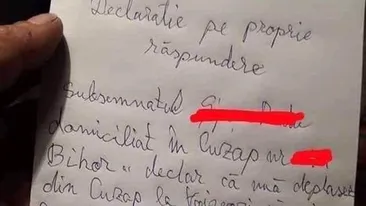 Declarație pe proprie
răspundere
Subsemnatul
domiciliat în Cuzap nr
Bihor" declar că mă deplasez
din Cuzap la